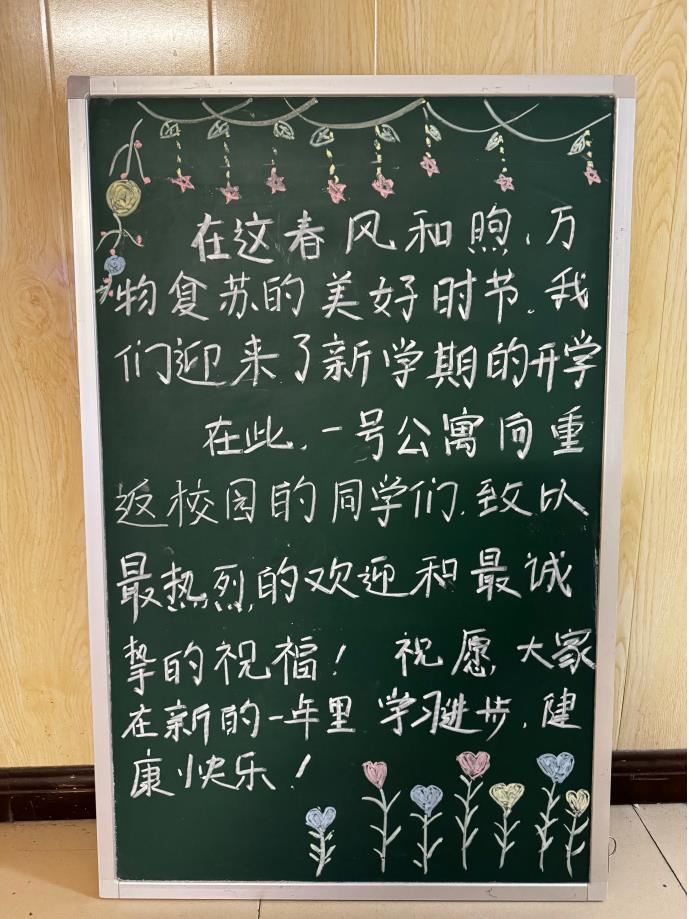 在这春风和煦、万
物复苏的美好时节.我
们迎来了新学期的开学
在此.一号公寓向重
返校园的同学们.致以
最热烈的欢迎和最诚
挚的祝福! 祝愿,大家
在新的一年里 学习进步、健
康快乐!